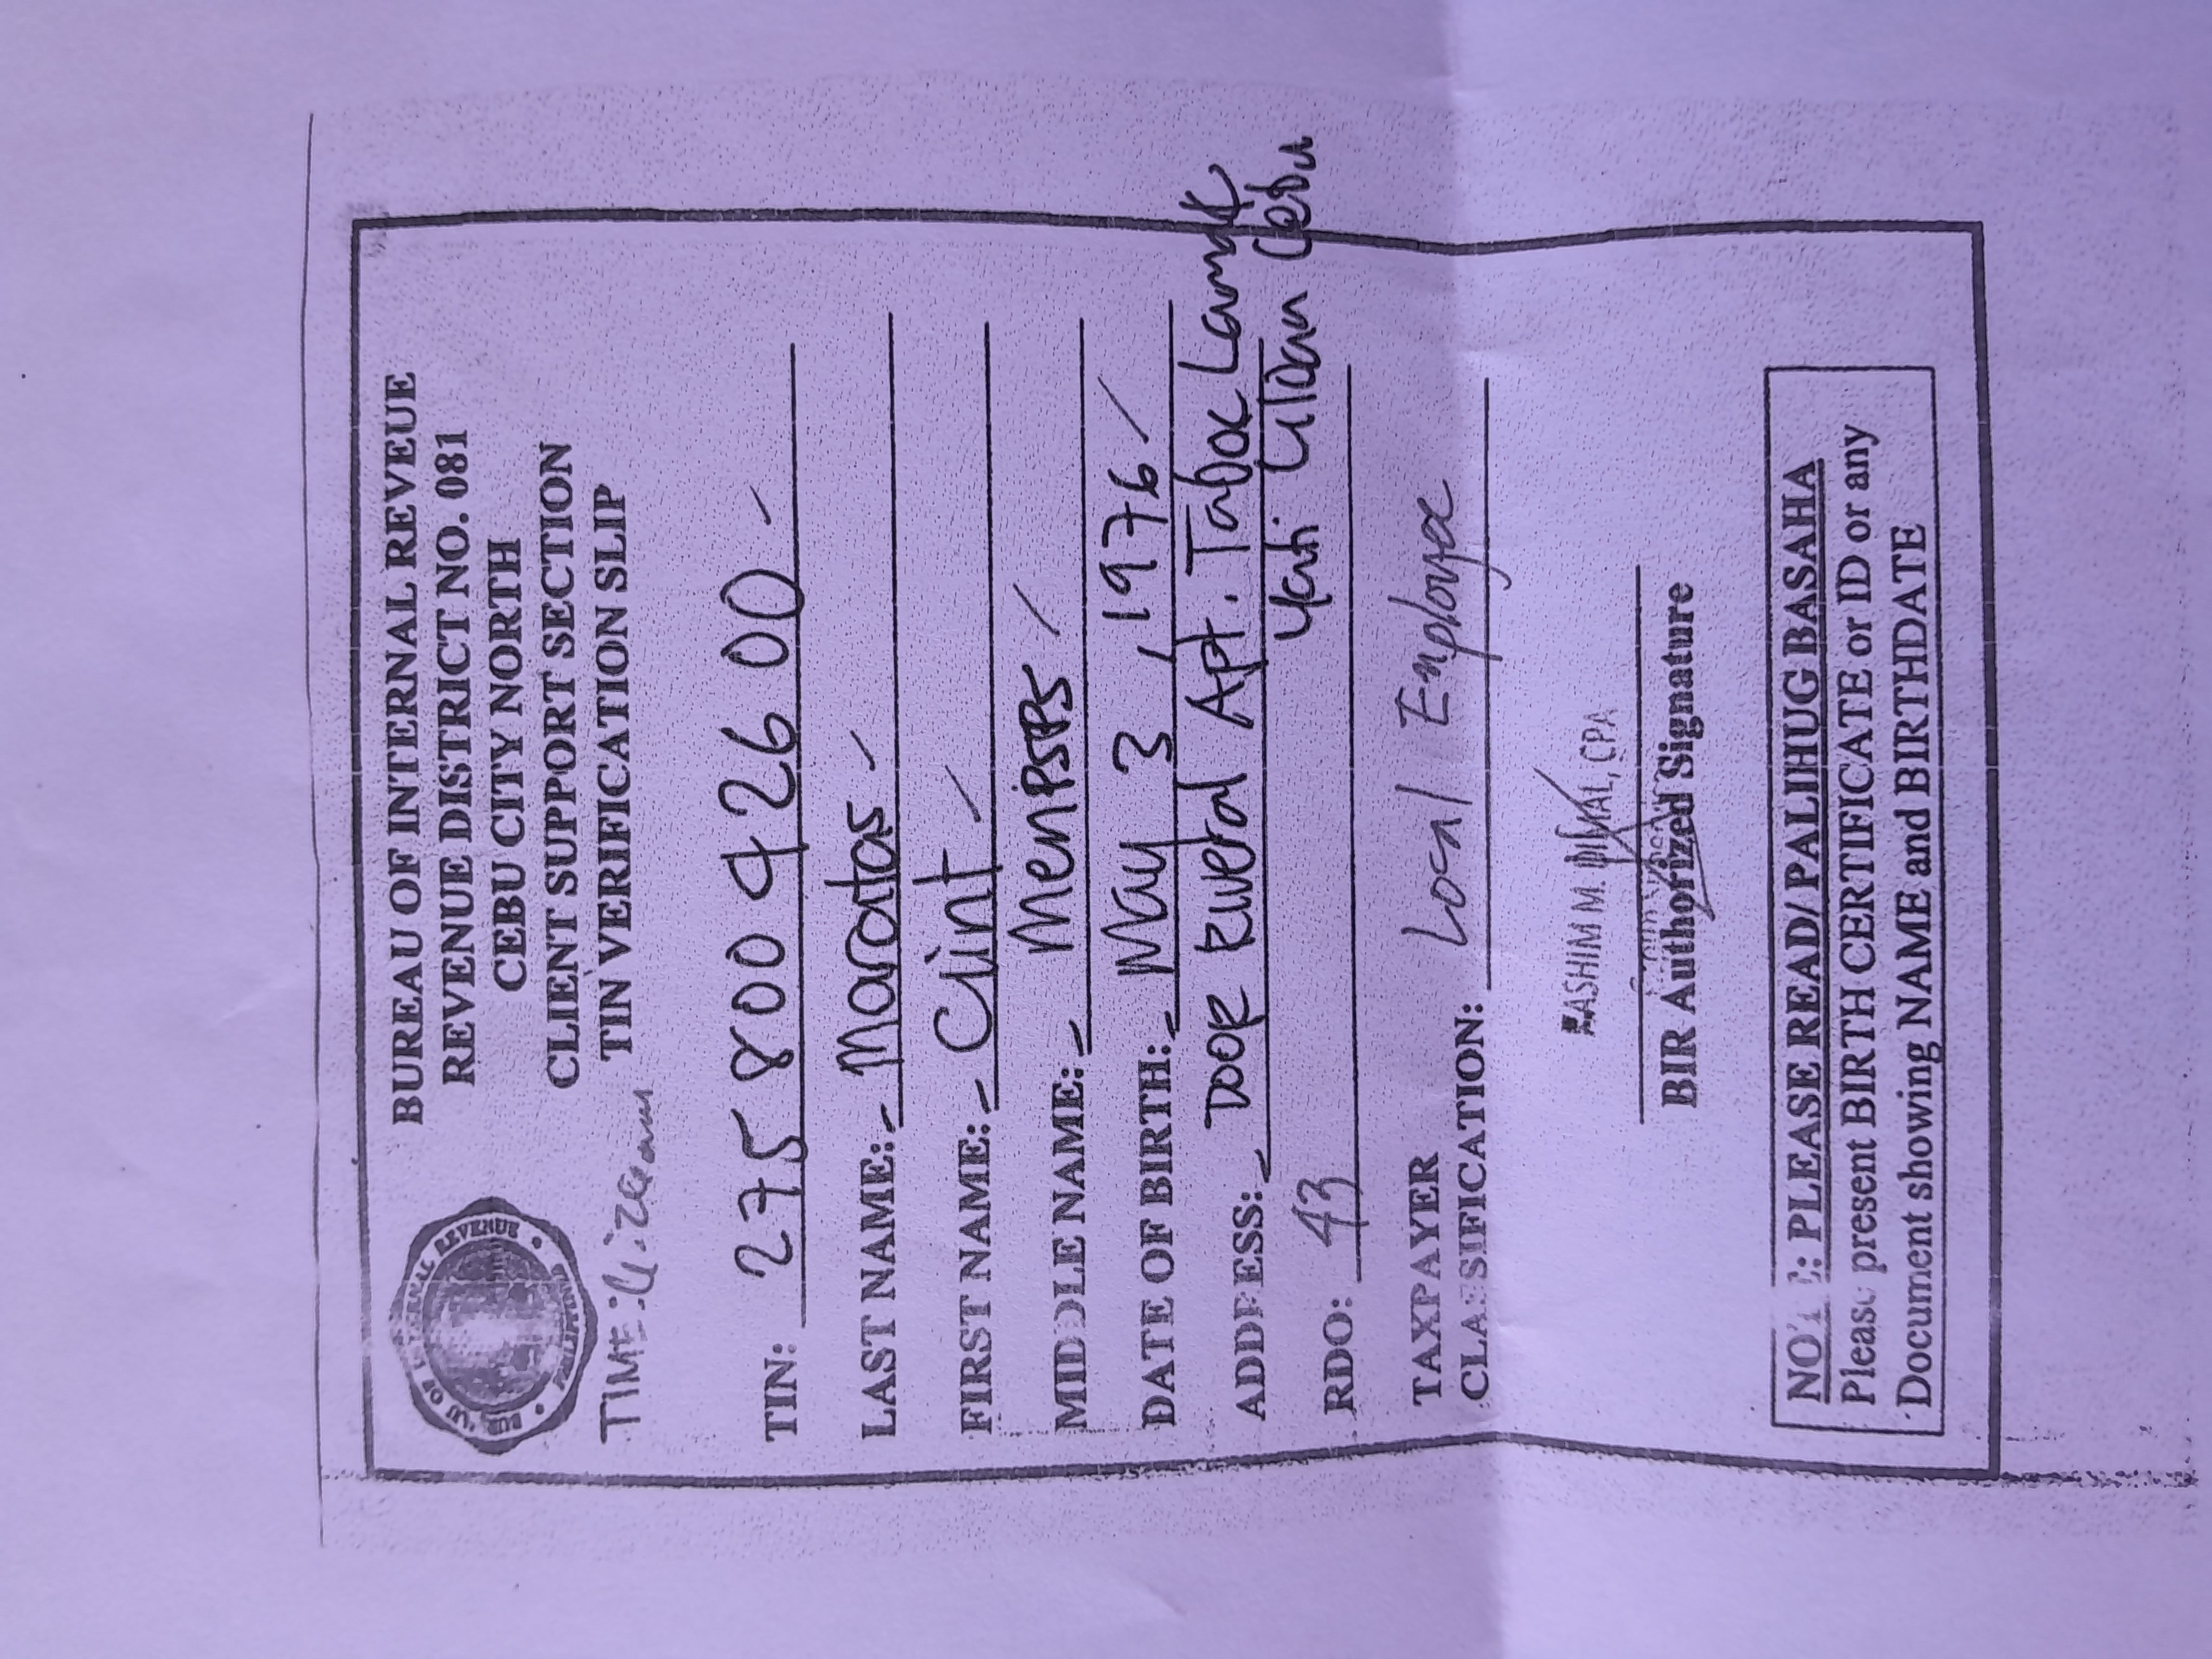 BUREAU OF INTERNAL REVEUE
REVENUE DISTRICT NO. 081
CEBU CITY NORTH
CLIENT SUPPORT SECTION
TIN VERIFICATION SLIP
TIME:
TIN: 275 800 926 00
LAST NAME: Maratas
FIRST NAME: Clint
MIDDLE NAME:
DATE OF BIRTH: May 3, 1976
ADDRESS: DOOR Apt. Taboc
Cebu
RDO: 43
TAXPAYER
CLASSIFICATION: Local Employee
HASHIM M. CPA
BIR Authorized Signature
NOTE: PLEASE READ/ PALIHUG BASAHA
Please present BIRTH CERTIFICATE or ID or any
Document showing NAME and BIRTHDATE